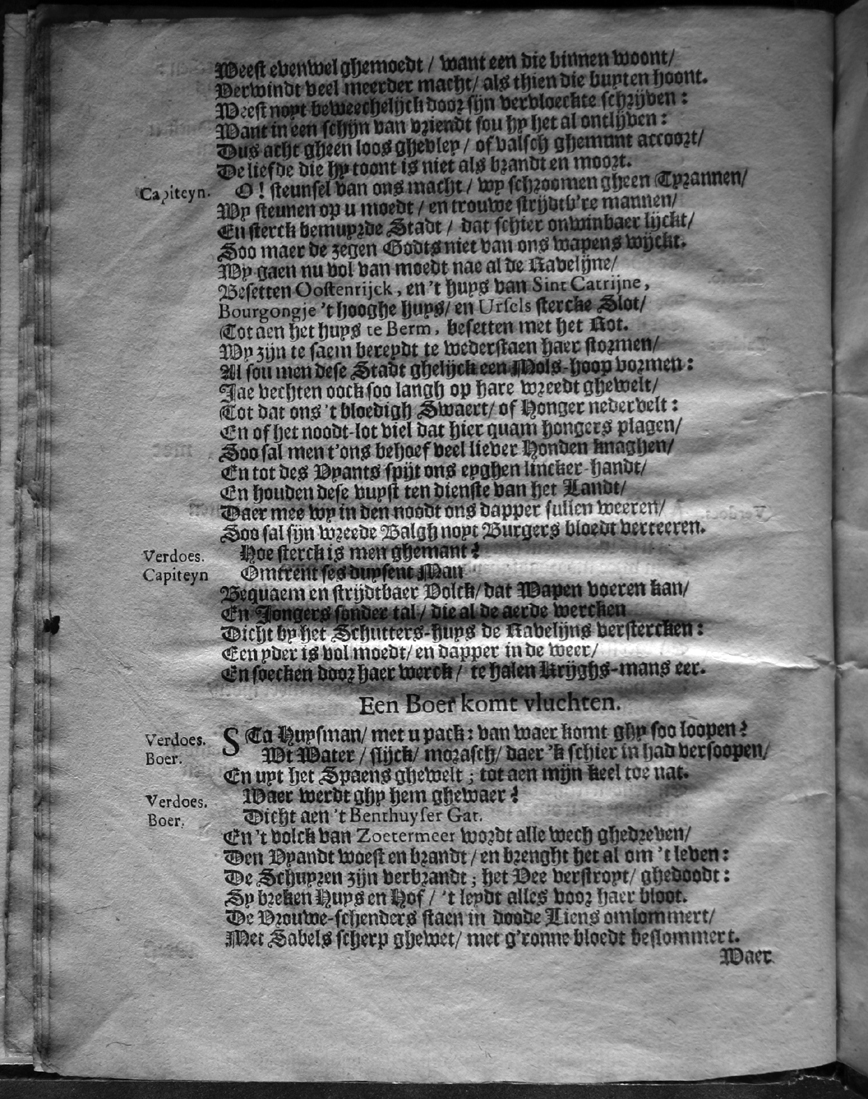 Weest evenwel ghemoedt / want een die binnen woont/
Verwindt veel meerder macht / als thien die buyten hoont.
Weest noyt beweechelijck door sijn vervloeckte schrijven:
Want in een schijn van vriendt sou hy het al ontlijven:
Dus acht gheen loos ghevley / of valsch ghemunt accoort/
De liefde die hy toont is niet als brandt en moort.
Capiteyn. O! steunsel van ons macht / wy schroomen gheen Tyrannen/
Wy steunen op u moedt / en trouwe strijdtb're mannen/
En sterck bemuyrde Stadt / dat schier onwinbaer lijckt/
Soo maer de zegen Godts niet van ons wapens wijckt.
Wy gaen nu vol van moedt nae al de Ravelijne/
Besetten Oostenrijck, en 't huys van Sint Catrijne,
Bourgongje 't hooghe huys/ en Ursels stercke Slot/
Tot aen het huys te Berm, besetten met het Rot.
Wy zijn te saem bereydt te wederstaen haer stormen/
Al sou men dese Stadt ghelijck een Mols-hoop vormen:
Jae vechten oock soo langh op hare wreedt ghewelt/
Tot dat ons 't bloedigh Swaert/ of Honger neder velt:
En of het noodt-lot viel dat hier quam hongers plagen/
Soo sal men t'ons behoef veel liever Honden knaghen/
En tot des Vyants spijt ons eyghen lincker-handt/
En houden dese vuyst ten dienste van het Landt/
Daer mee wy in den noodt ons dapper sullen weeren/
Soo sal sijn wreede Balgh noyt Burgers bloedt verteeren.
Verdoes. Hoe sterck is men ghemant?
Capiteyn Omtrent ses duysent Man
Bequaem en strijdtbaer Volck/ dat Wapen voeren kan/
En Jongers sonder tal / die al de aerde wercken
Dicht by het Schutters-huys de Ravelijns verstercken:
Een yder is vol moedt/ en dapper in de weer/
En soecken door haer werck / te halen Krijghs-mans eer.
Een Boer komt vluchten.
Verdoes. STa Huysman/ met u pack: van waer komt ghy soo loopen?
Boer. Wt Water / slijck/ morasch/ daer 'k schier in had versoopen/
En uyt het Spaens ghewelt; tot aen mijn keel toe nat.
Verdoes. Waer werdt ghy hem ghewaer?
Boer. Dicht aen 't Benthuyser Gat.
En 't volck van Zoetermeer wordt alle wech ghedreven/
Den Vyandt woest en brandt / en brenght het al om 't leven:
De Schuyren zijn verbrandt; het Vee verstroyt / ghedoodt:
Sy breken Huys en Hof / 't leydt alles voor haer bloot.
De Vrouwe-schenders staen in doode Liens omlommert/
Met Sabels scherp ghewet/ met g'ronne bloedt beslommert.
Waer